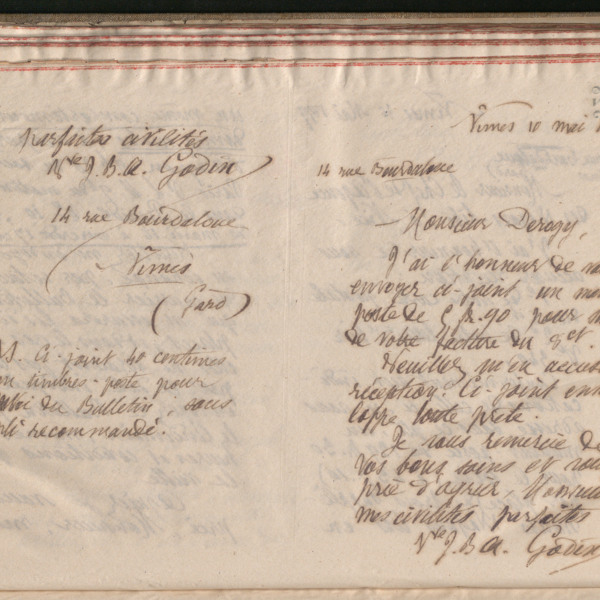 parfaites civilités
Vve J. B. A. Godin
14 rue Bourdaloue
Nîmes
(Gard)
S. Ci-joint 40 centimes
timbres-poste pour
du Bulletin, sous
recommandé.
Nîmes 10 mai
14 rue Bourdaloue
Monsieur Derogy,
J'ai l'honneur de
envoyer ci-joint un
poste de 6 fr. 90 pour
de votre facture du 8 ct.
Veuillez m'en
réception. Ci-joint
loppe toute prête.
Je vous remercie de
vos bons soins et
prie d'agréer,
mes civilités parfaites
Vve J. B. A. Godin